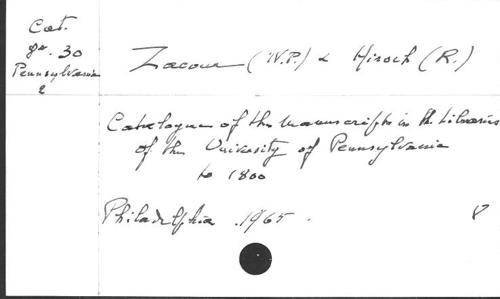 Cat.
8º. 30
Pennsylvania
2
Zacour (N.P.) & Hirsch (R.)
Catalogue of the Manuscripts in the Libraries
of the University of Pennsylvania
to 1800
Philadelphia .1965.